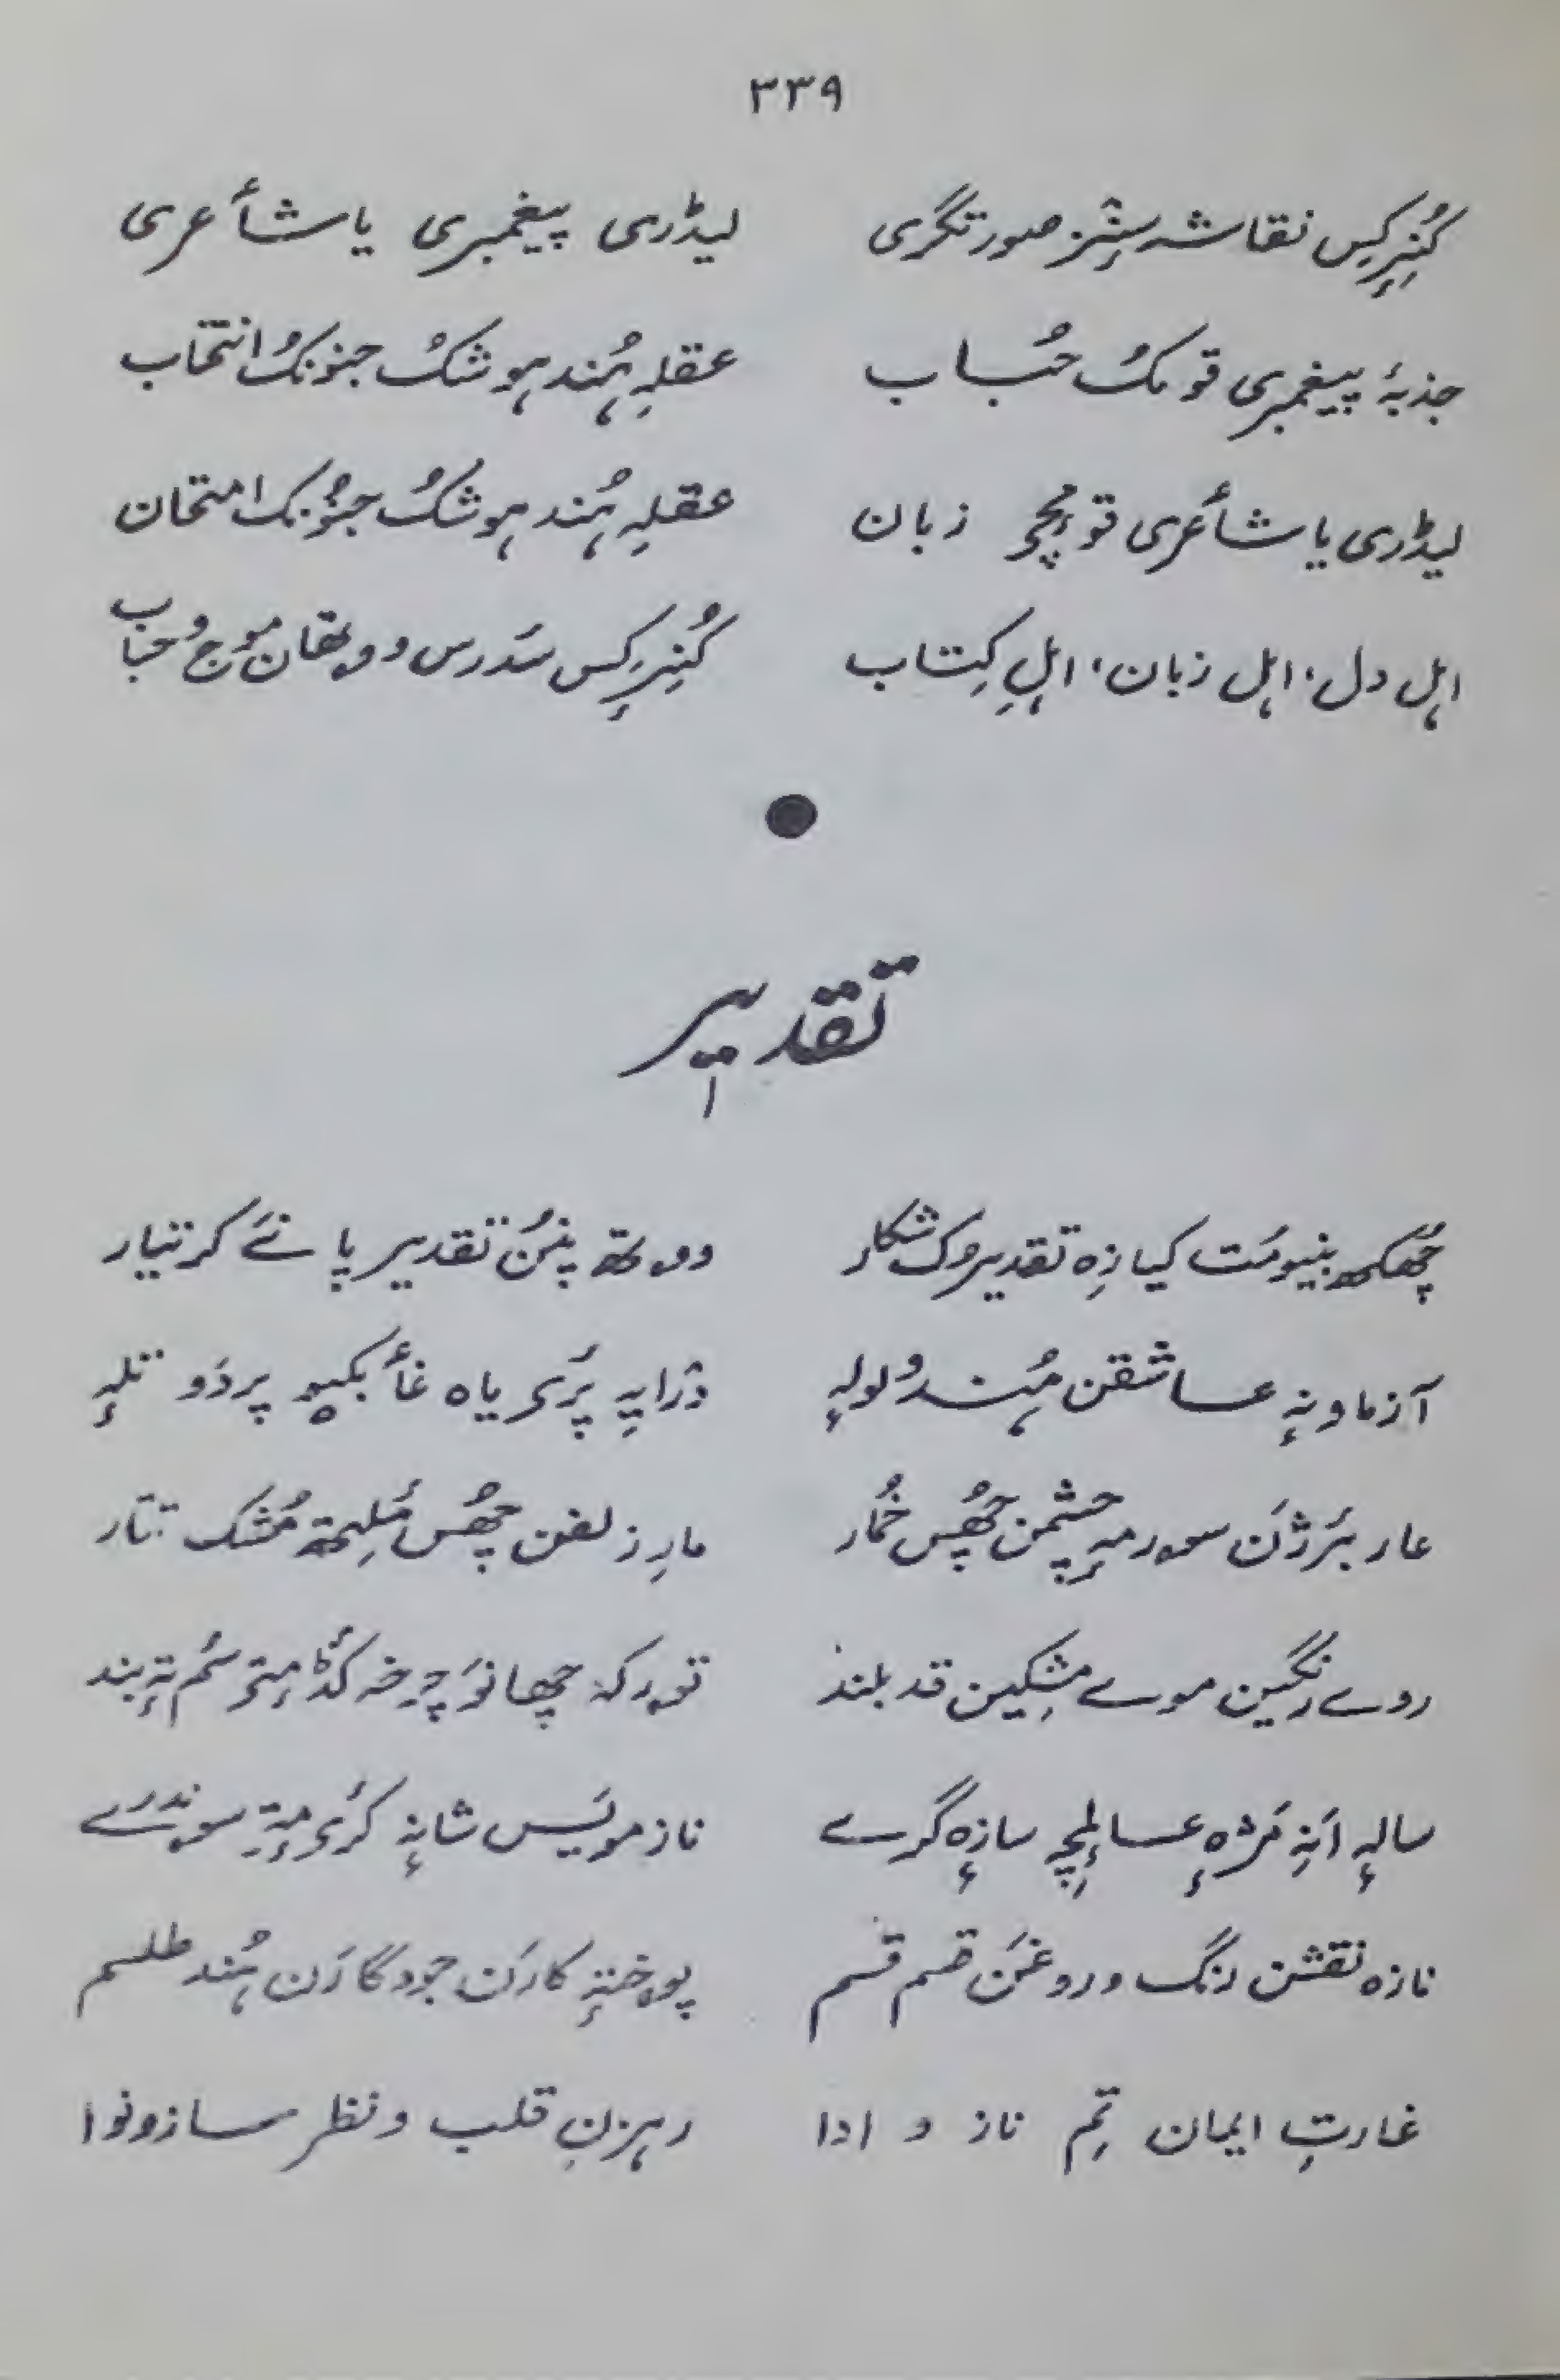 ۳۳۹
کُنِرِکِس نقاشہ سٕنٛز صورتگری لیڈری پیغمبری یا شأعری
جذبۂ پیغمبری قومکُ حُساب عقلہِ ہُند ہوشکُ جنونکُ انتخاب
لیڈری یا شأعری قومٕچ زبان عقلہِ ہُند ہوشکُ جنونُک امتحان
اہل دل، اہل زبان، اہلِ کِتاب کُنِرِکِس سَدرس ووتھان موج و حباب
تقدیر
چُھکھ بنیومُت کیازِہ تقدیرُک شکار ووتھ پنُن تقدیر پانے کر تیار
آزماونہٕ عاشقن ہُند ولولہٕ دْرایہِ پرٛی یاہ غأبکیو پردَو تلہٕ
عار بٔرژن سورمہٕ چشمن چُھس خُمار مارِ زلفن چُھس مُلیتھ مُشک تتار
روے رنگین موے مشکین قد بلند تورکہ چھانَو چرخہ کٔڈ مِتر سٔم تہٕ بند
سالہٕ أنہِ مَژہٕ عالمچہِ سازہٕ گرے ناز مویَس شانہٕ کرٔی مٕتہِ سوندرے
تازہ نقشن رنگ و روغن قسم قسم پوختہٕ کارَن جودگارَن ہُند طلسم
غارتِ ایمان تِم ناز و ادا رہزنِ قلب و نظر ساز و نوا